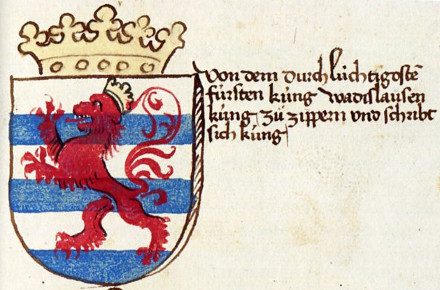 Von dem durchlüchtigoste
fürsten küng wadislausen
küng zü zippern vnd schribt
sich küng